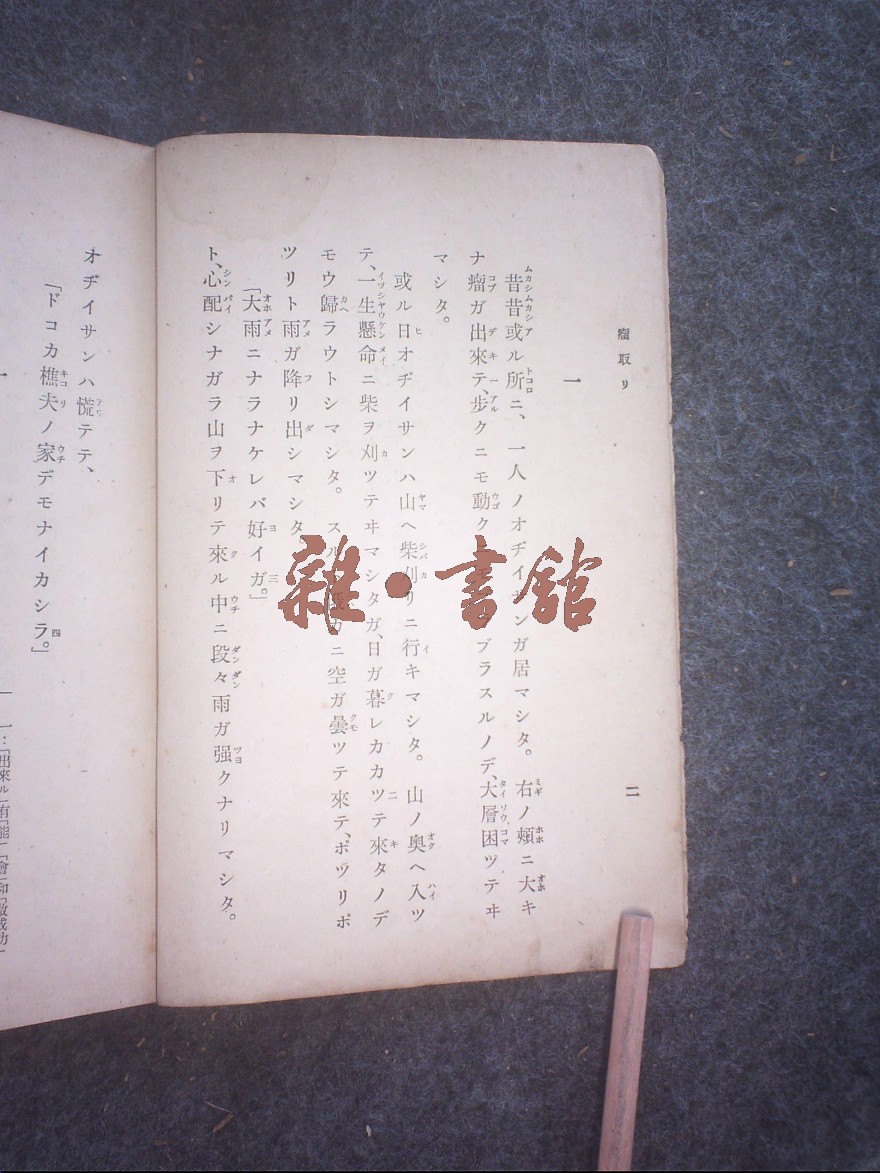 瘤取リ
二
一
昔昔或ル所ニ、一人ノオヂイサンガ居マシタ。右ノ頰ニ大キ
ナ瘤ガ出來テ、步クニモ動ク ブラスルノデ、大層困ツテヰ
マシタ。
或ル日オヂイサンハ山ヘ柴刈リニ行キマシタ。山ノ奧ヘ入ツ
テ、一生懸命ニ柴ヲ刈ツテヰマシタガ、日ガ暮レカカツテ來タノデ
モウ歸ラウトシマシタ。スル ニ空ガ曇ツテ來テ、ポヅリポ
ツリト雨ガ降リ出シマシタ
「大雨ニナラナケレバ好イガ。」
ト、心配シナガラ山ヲ下リテ來ル中ニ段々雨ガ强クナリマシタ。
オヂイサンハ慌テテ、
「ドコカ樵夫ノ家デモナイカシラ。」
一
一:「出來ル」有「能」「會」和「做成功」
雜・書館